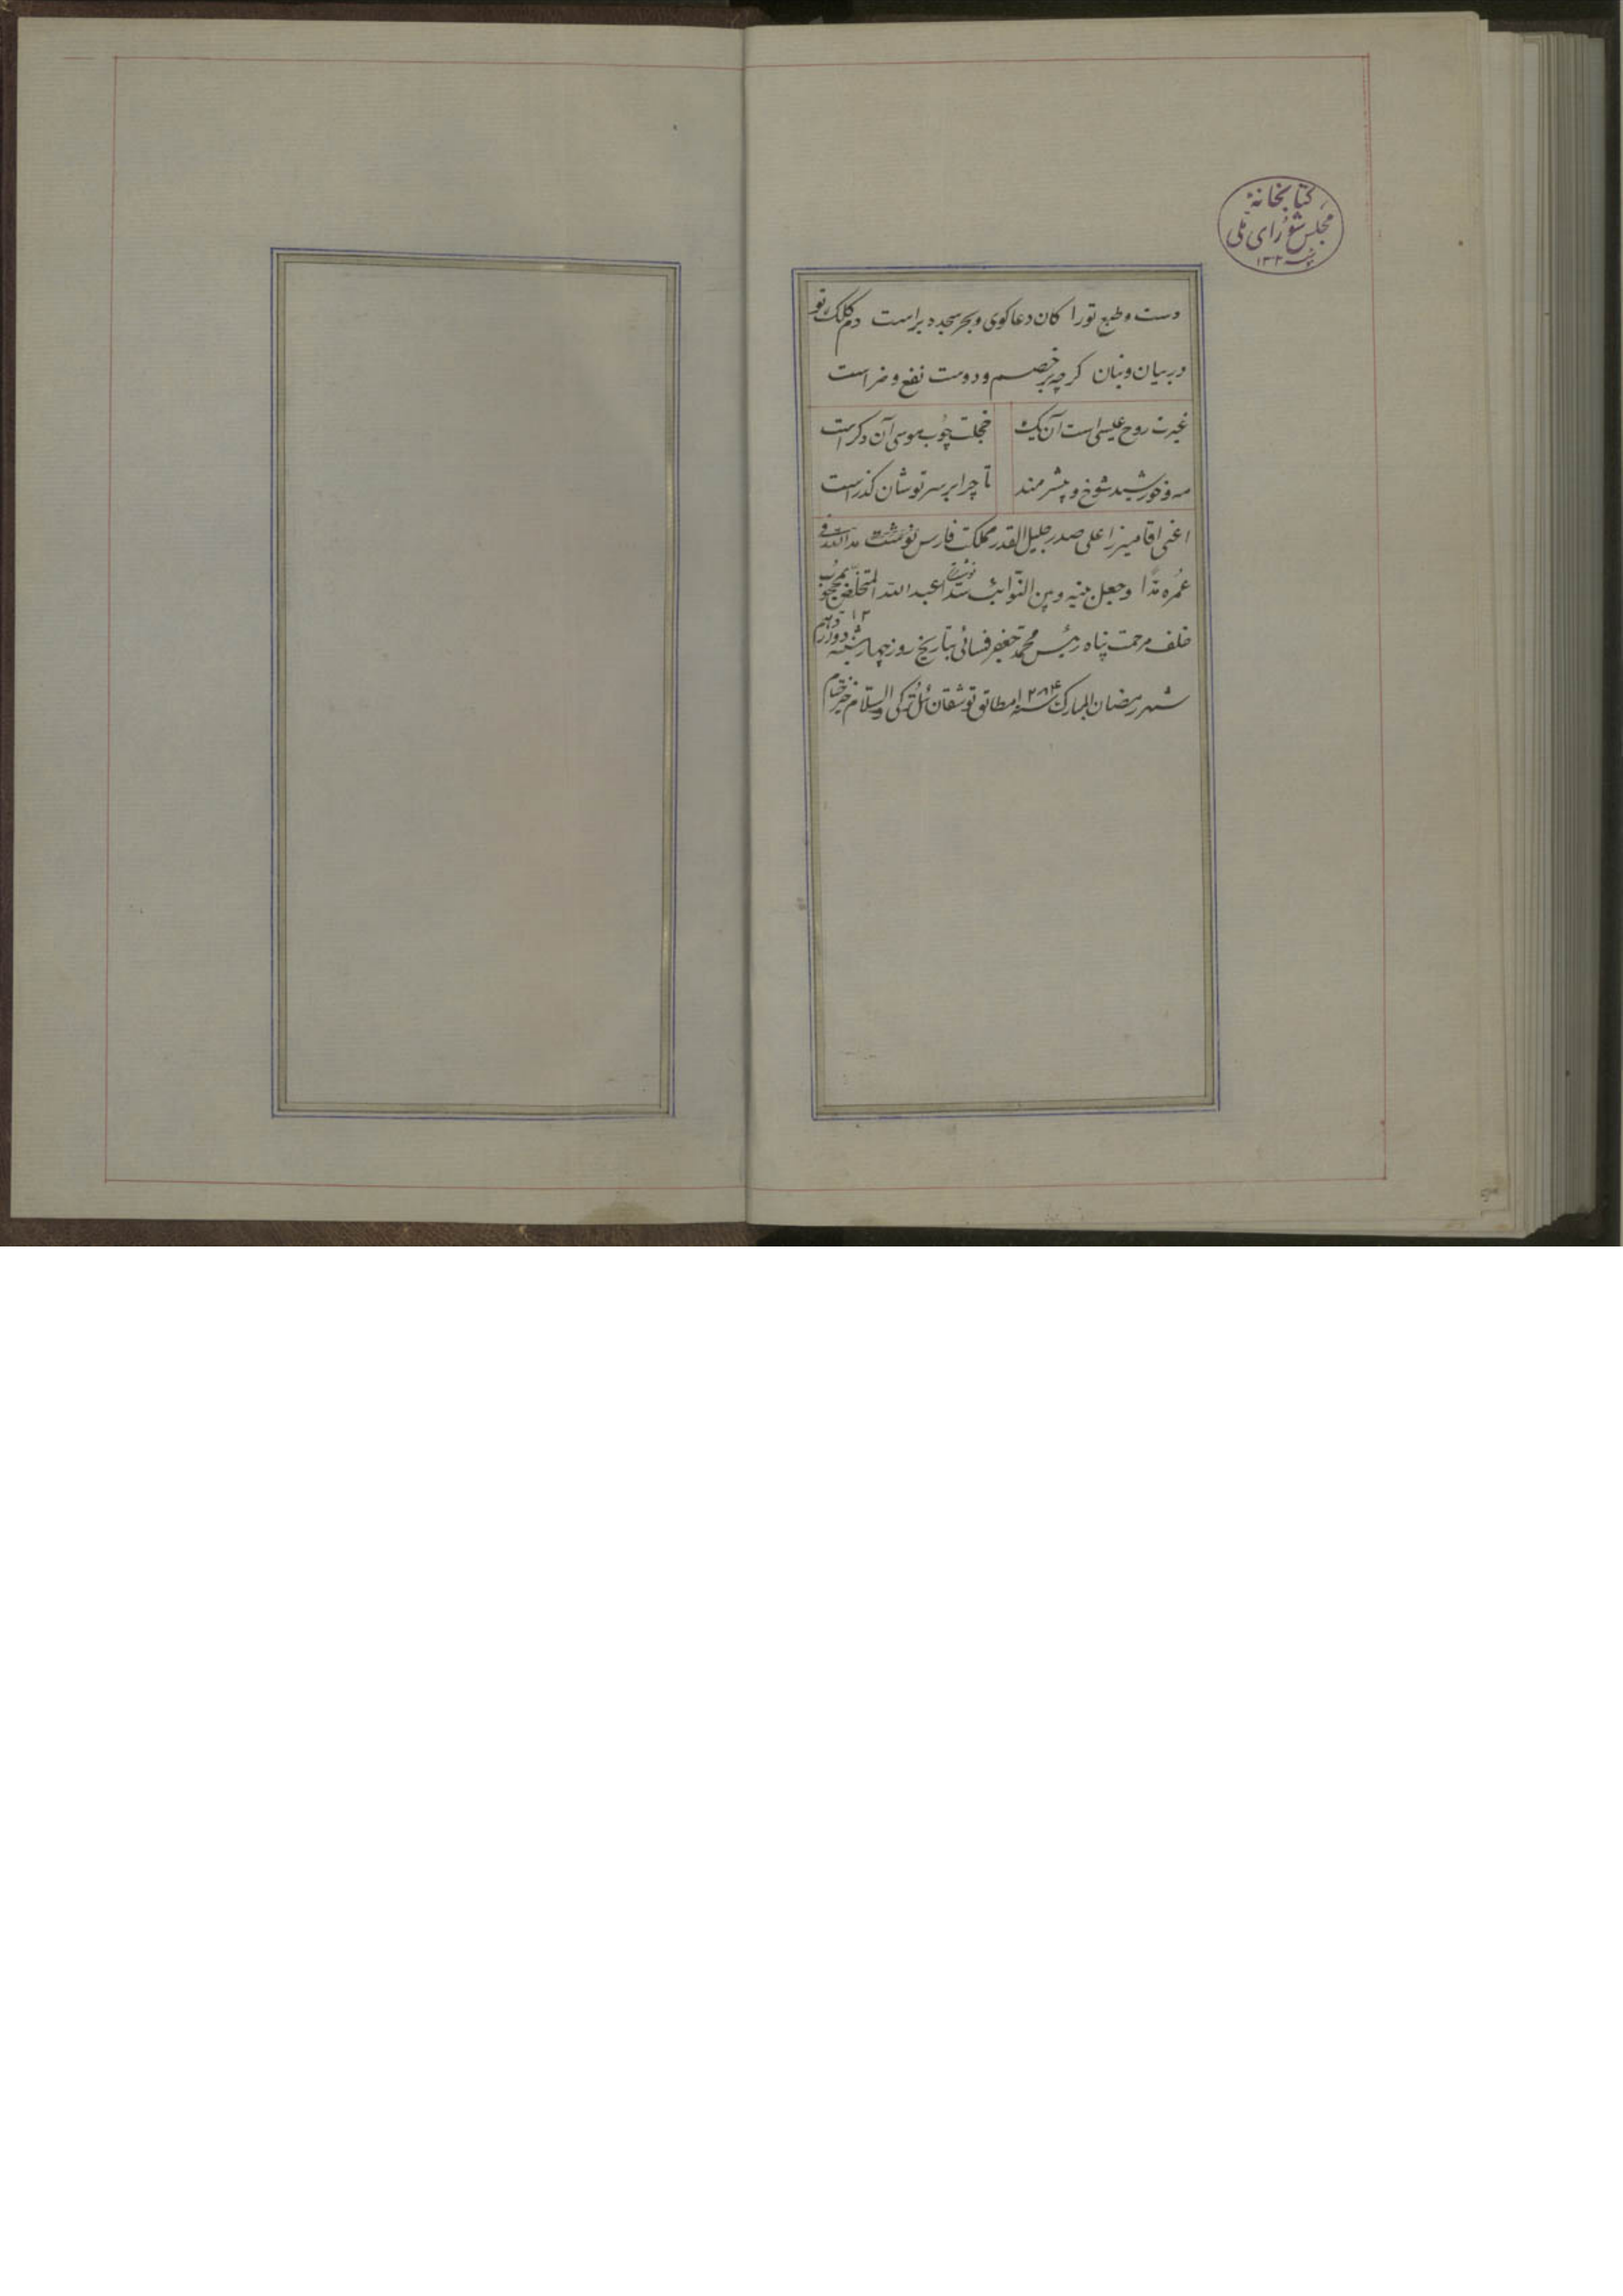 کتابخانهٔ
مجلس شورای ملی
دست و طبع تو را کان دعا کوی و بحر سجده بر است دم کلک تو
در بیان و بنان کرچه بر خصم و دوست نفع و ضر است
غیرت روح عیسی است آن یک خجلت چوب موسی آن دکر است
مه و خورشید شوخ و بیشرمند تا چرا بر سر تو شان کذر است
اغنی اقا میرزا علی صدر جلیل القدر مملکت فارس نوشته مد الله فی
عمره مدا و جعل بینه و بین النوائب سدا عبد الله المتخلص
خلف مرحمت پناه رئیس محمد جعفر فسائی بتاریخ روز چهارشنبه ۱۲ دوازدهم
شهر رمضان المبارک سنه ۱۲۸۴ مطابق توشقان ئیل ترکی والسلام خیر ختام